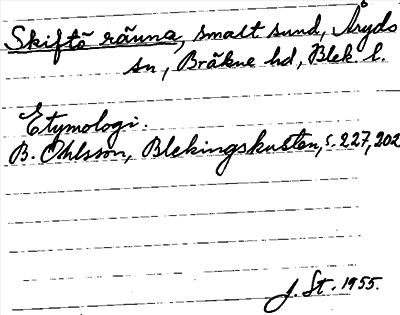 Skiftö räuna, smalt sund, Åryds
sn, Bräkne hd, Blek l.
Etymologi.
B. Ohlsson, Blekingskusten, s. 227, 202
J. St. 1955.